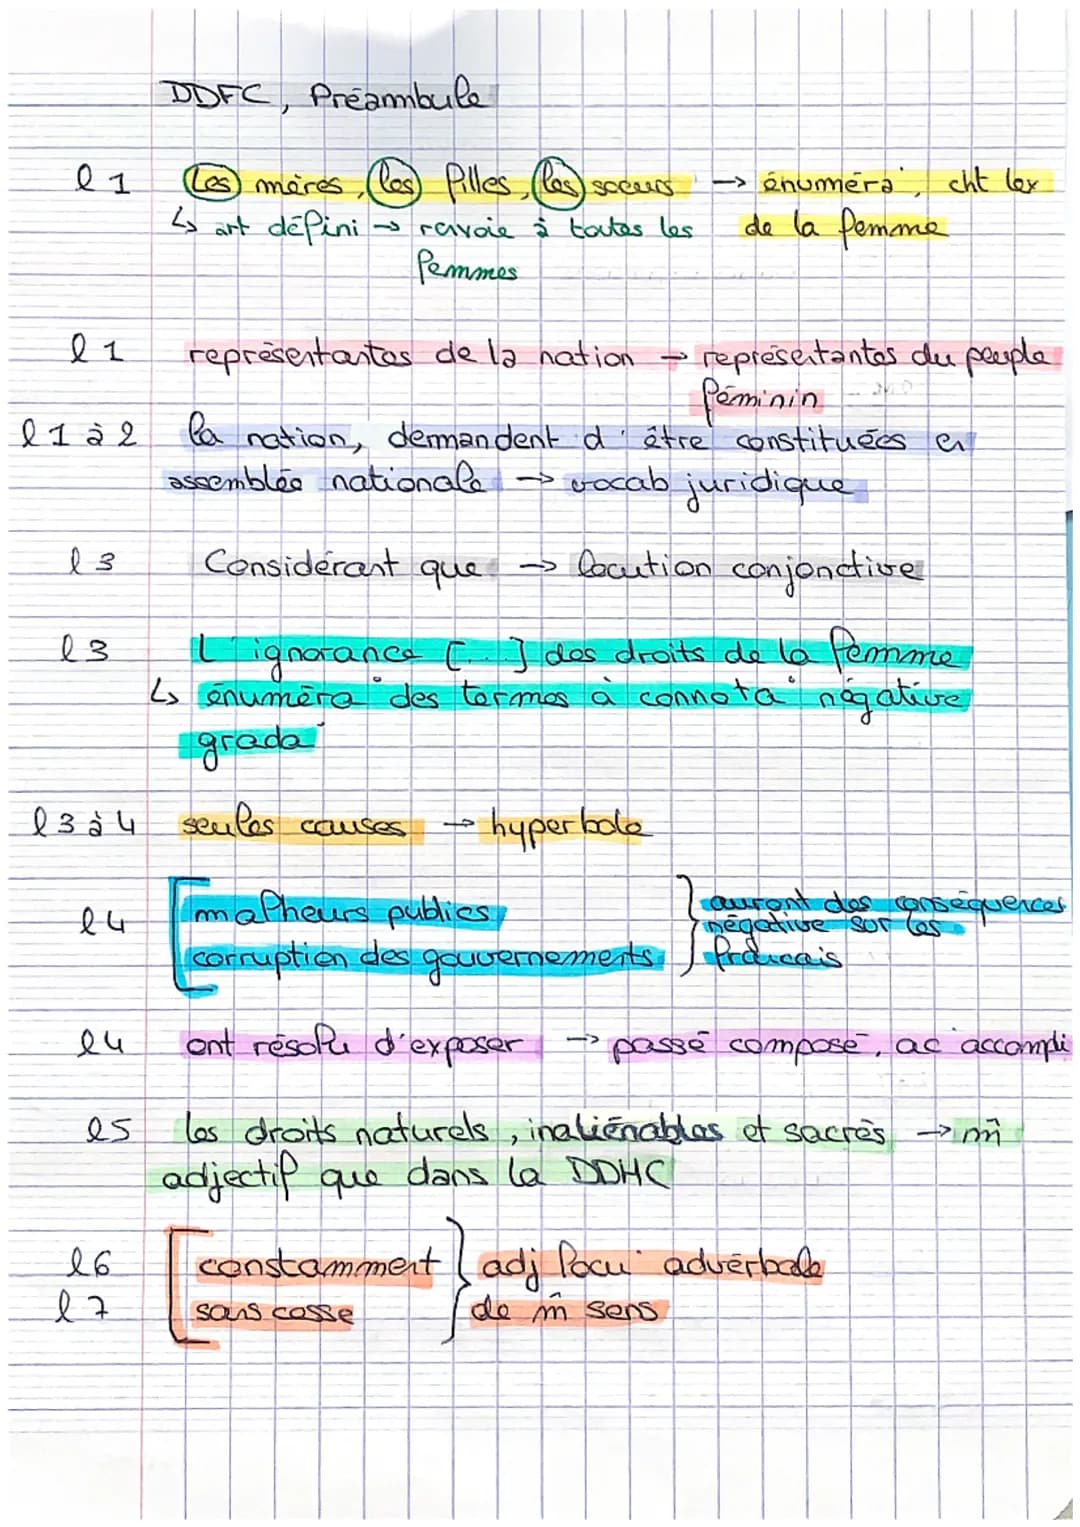 DDFC, Préambule
l 1 Les mères, les filles, les soeurs → énuméra°, cht lex
↳ art défini → renvoie à toutes les de la femme
femmes
l 1 représentantes de la nation → représentantes du peuple
féminin
l 1 à 2 la nation, demandent d'être constituées en
assemblée nationale → vocab juridique
l 3 Considérant que → locution conjonctive
l 3 L'ignorance [...] des droits de la femme
↳ énuméra° des termes à connota° négative
grada°
l 3 à 4 seules causes → hyperbole
l 4 [ malheurs publics } auront des conséquences
négative sur les
corruption des gouvernements français
l 4 ont résolu d'exposer → passé composé, ac° accompli
l 5 les droits naturels, inaliénables et sacrés → m̂
adjectif que dans la DDHC
l 6 [ constamment } adj locu° adverbale
l 7 sans cesse de m̂ sens